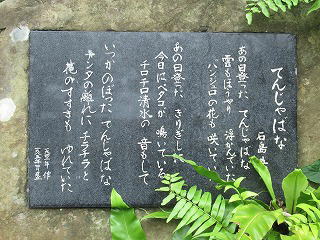 てんじゃばな
石島
あの日登った てんじゃばな
雲もぼうやり 浮かんでいた
バンジュロの花も 咲いていた
あの日登った きりぎしに
今日はペタコが 鳴いている
チロチロ清水の 音もして
いつかのぼった てんじゃばな
サンタの離れに チラチラと
花のすすきも ゆれていた